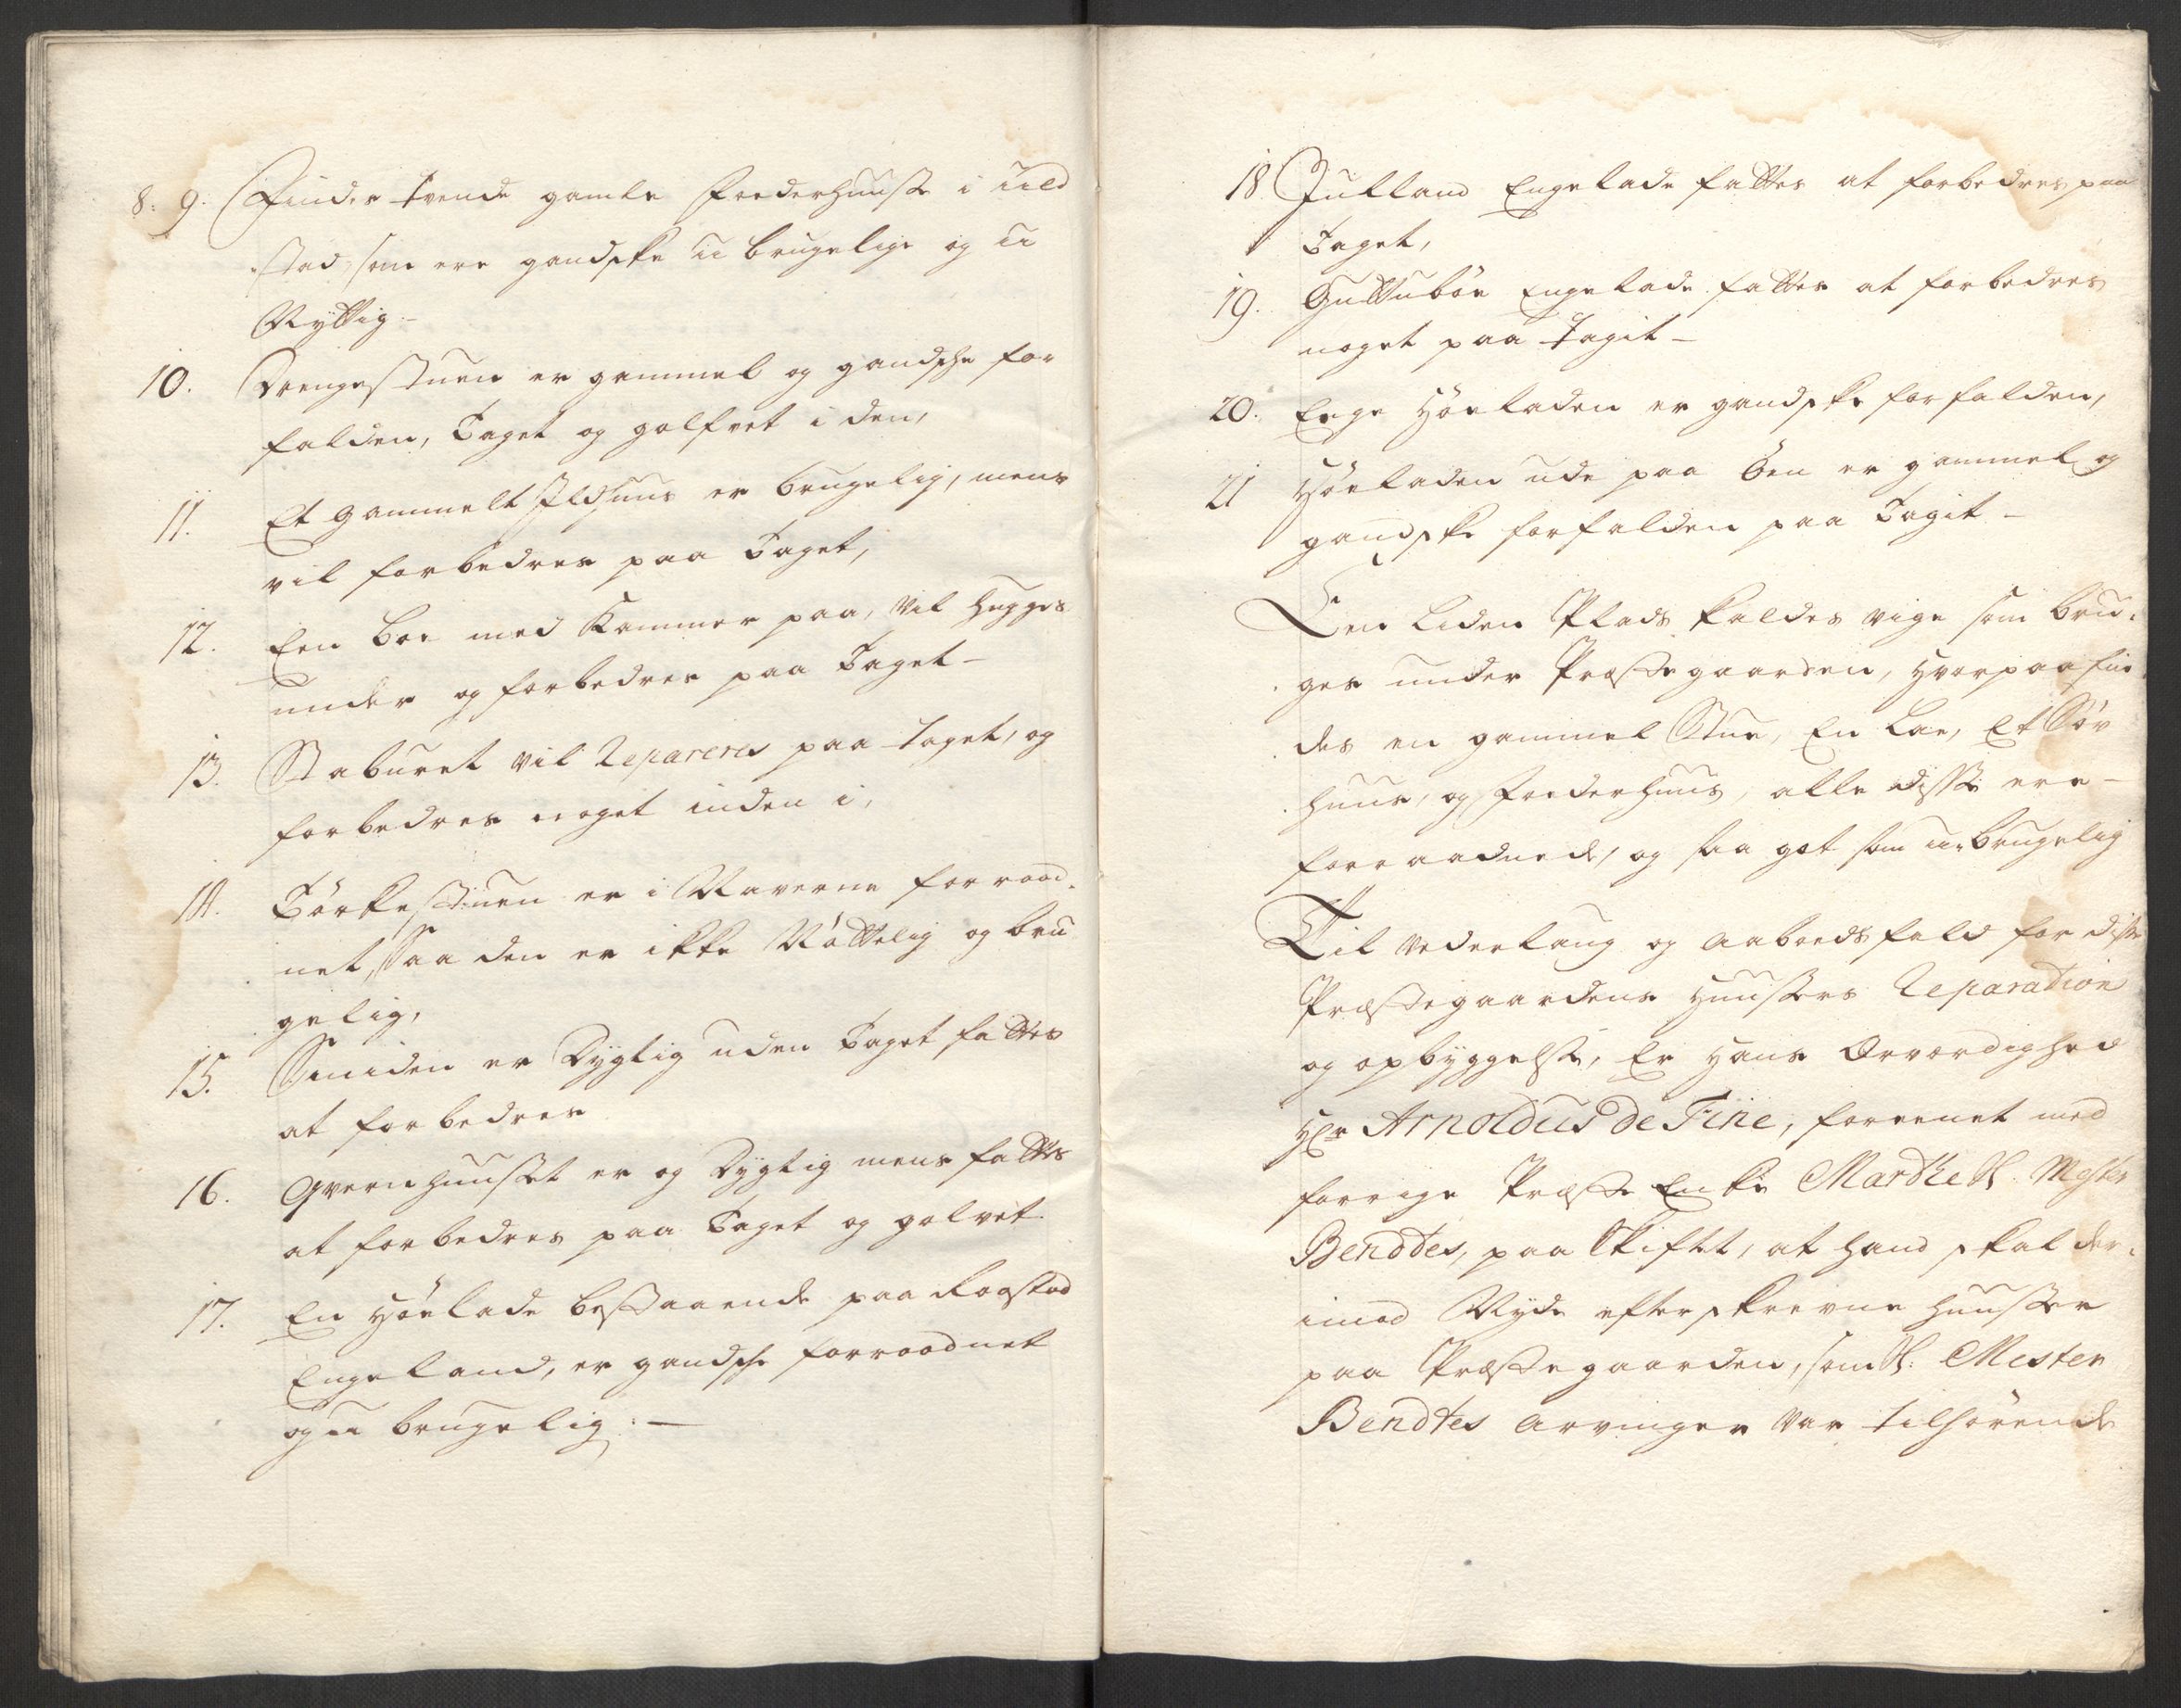 8. 9. Findes tvende gamle Foederhuuse i uild
stad, som ere gandske u brugelige og u
Nyttig.
10. Drengestuen er gammel og gandske for
falden, Taget og golfvet i den,
11. Et gammelt Ildhuus er brugelig, mens
vil forbedres paa Taget,
12. Een boe med Kammer paa, vil hugges
under og forbedres paa Taget –
13. Staburet vil Repareres paa Taget, og
forbedres noget inden i,
14. Törkestuen er i Naverne forraad-
net, Saa den er ikke Nöttelig og bru
gelig,
15. Smiden er Dygtig uden Taget fattes
at forbedres
16. Qvernhuuset er og Dygtig mens fattes
at forbedres paa Taget og golvet
17. En Höelade bestaaende paa Rogstad
Engeland, er gandske forraadnet
og u brugelig: —
18. Julland Engelade fattes at forbedres paa
Taget,
19. Guttuböe Engelade fattes at forbedres
noget paa Tagit –
20. Enge Höeladen er gandske forfalden,
21 Höeladen ude paa Öen er gammel og
gandske forfalden paa Tagit –
Een Liden Plads kaldes vige som bru-
ges under Præstegaarden, hvorpaa fin
des en gammel Stue, En Lae, Et Söv
huus, og Foederhuus, alle disse ere –
forraadnede, og saa got som u-brugelig
Til vederlaug og Aabodsfald for disse
Præstegaardens Huusers Reparation
og opbyggelse, Er Hans Ærværdighed
Hr Arnoldus de Fine, foreenet med
forrige Præste Enke Marthe Sl. Mester
Bendtes, paa Skiftt, at hand skal der-
imod Nyde efterskrevne Huuser
paa Præstegaarden, som Sl: Mester
Bendtes Arvinger var tilhörende